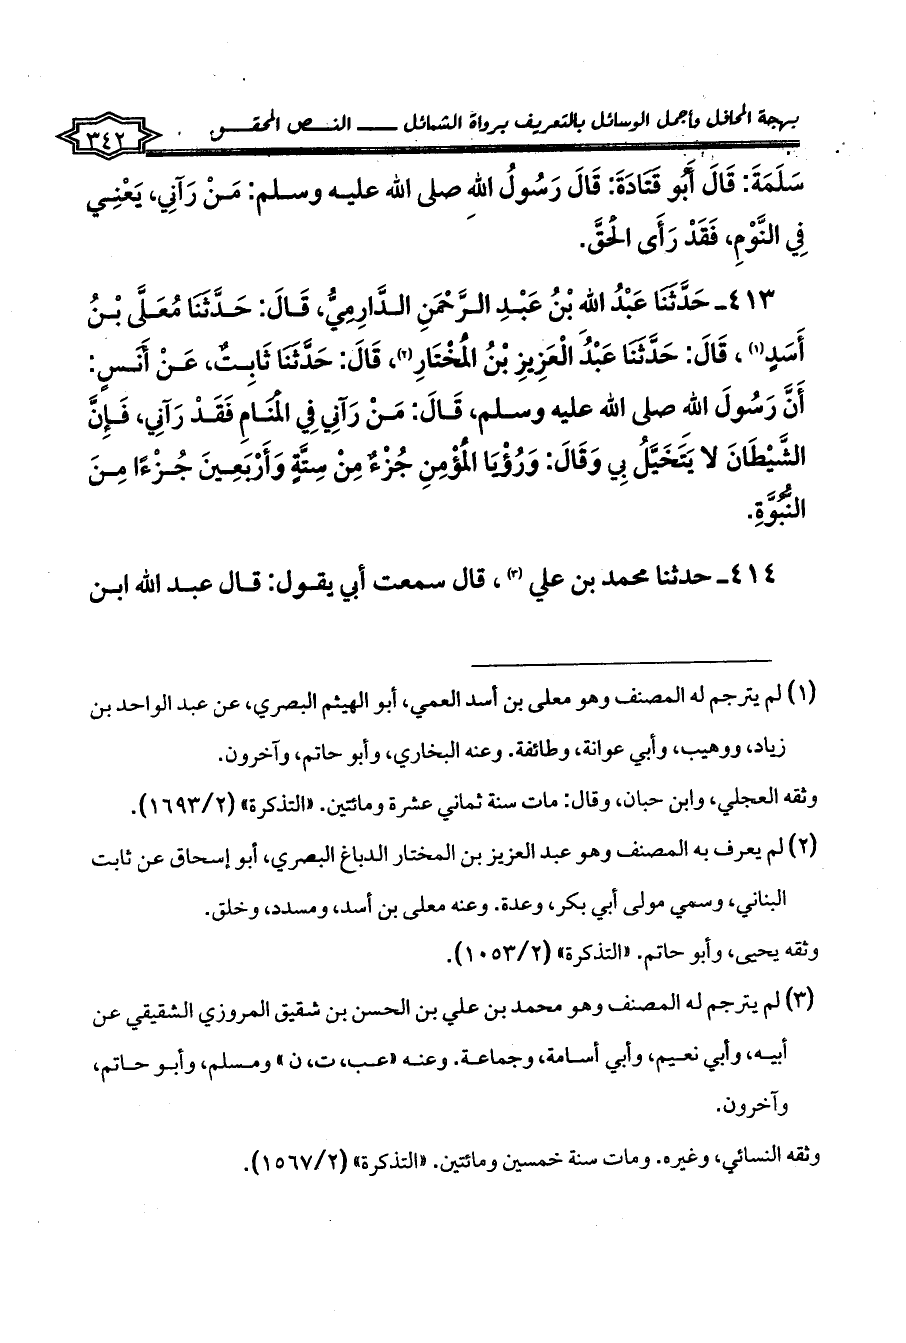 بهجة المحافل وأجمل الوسائل بالتعريف برواة الشمائل ــــ النــص المحقــق
٣٤٢
سَلَمَةَ: قَالَ أَبُو قَتَادَةَ: قَالَ رَسُولُ الله صلى الله عليه وسلم: مَنْ رَآنِي، يَعْنِي
فِي النَّوْمِ، فَقَدْ رَأَى الْحَقَّ.
٤١٣ـ حَدَّثَنَا عَبْدُ الله بْنُ عَبْدِ الرَّحْمَنِ الدَّارِمِيُّ، قَالَ: حَدَّثَنَا مُعَلَّى بْنُ
أَسَدٍ(١)، قَالَ: حَدَّثَنَا عَبْدُ الْعَزِيزِ بْنُ الْمُخْتَارِ(٢)، قَالَ: حَدَّثَنَا ثَابِتٌ، عَنْ أَنَسٍ:
أَنَّ رَسُولَ الله صلى الله عليه وسلم، قَالَ: مَنْ رَآنِي فِي الْمَنَامِ فَقَدْ رَآنِي، فَإِنَّ
الشَّيْطَانَ لا يَتَخَيَّلُ بِي وَقَالَ: وَرُؤْيَا الْمُؤْمِنِ جُزْءٌ مِنْ سِتَّةٍ وَأَرْبَعِينَ جُزْءًا مِنَ
النُّبُوَّةِ.
٤١٤ـ حدثنا محمد بن علي (٣)، قال سمعت أبي يقول: قال عبد الله ابن
(١) لم يترجم له المصنف وهو معلى بن أسد العمي، أبو الهيثم البصري، عن عبد الواحد بن
زياد، ووهيب، وأبي عوانة، وطائفة. وعنه البخاري، وأبو حاتم، وآخرون.
وثقه العجلي، وابن حبان، وقال: مات سنة ثماني عشرة ومائتين. «التذكرة» (١٦٩٣/٢).
(٢) لم يعرف به المصنف وهو عبد العزيز بن المختار الدباغ البصري، أبو إسحاق عن ثابت
البناني، وسمي مولى أبي بكر، وعدة. وعنه معلى بن أسد، ومسدد، وخلق.
وثقه يحيى، وأبو حاتم. «التذكرة» (١٠٥٣/٢).
(٣) لم يترجم له المصنف وهو محمد بن علي بن الحسن بن شقيق المروزي الشقيقي عن
أبيه، وأبي نعيم، وأبي أسامة، وجماعة. وعنه «عب، ت، ن» ومسلم، وأبو حاتم،
وآخرون.
وثقه النسائي، وغيره. ومات سنة خمسين ومائتين. «التذكرة» (١٥٦٧/٢).